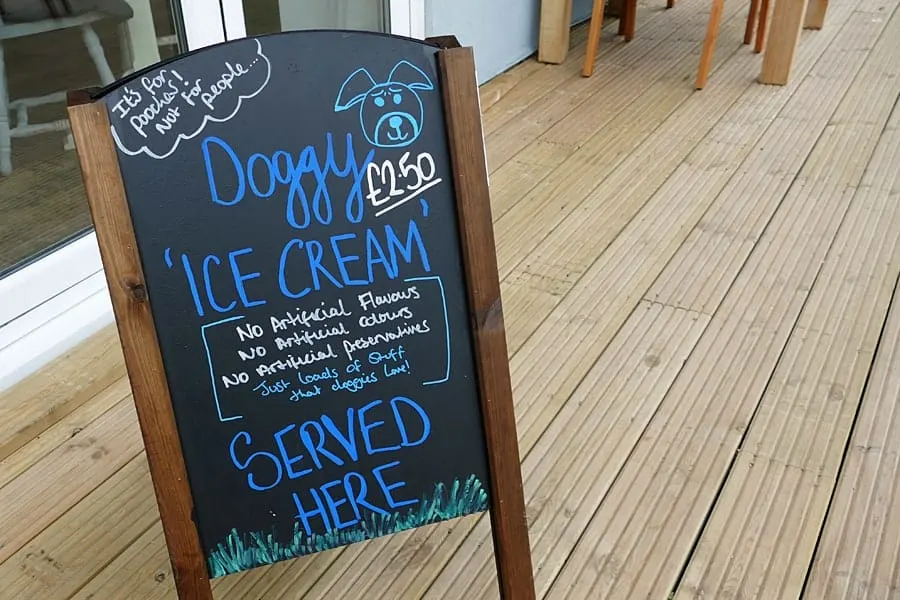 It's for
pooches!
Not for people...
Doggy
£2.50
'ICE CREAM'
No Artificial Flavours
No Artificial colours
No Artificial preservatives
Just loads of Stuff
that doggies love!
SERVED
HERE